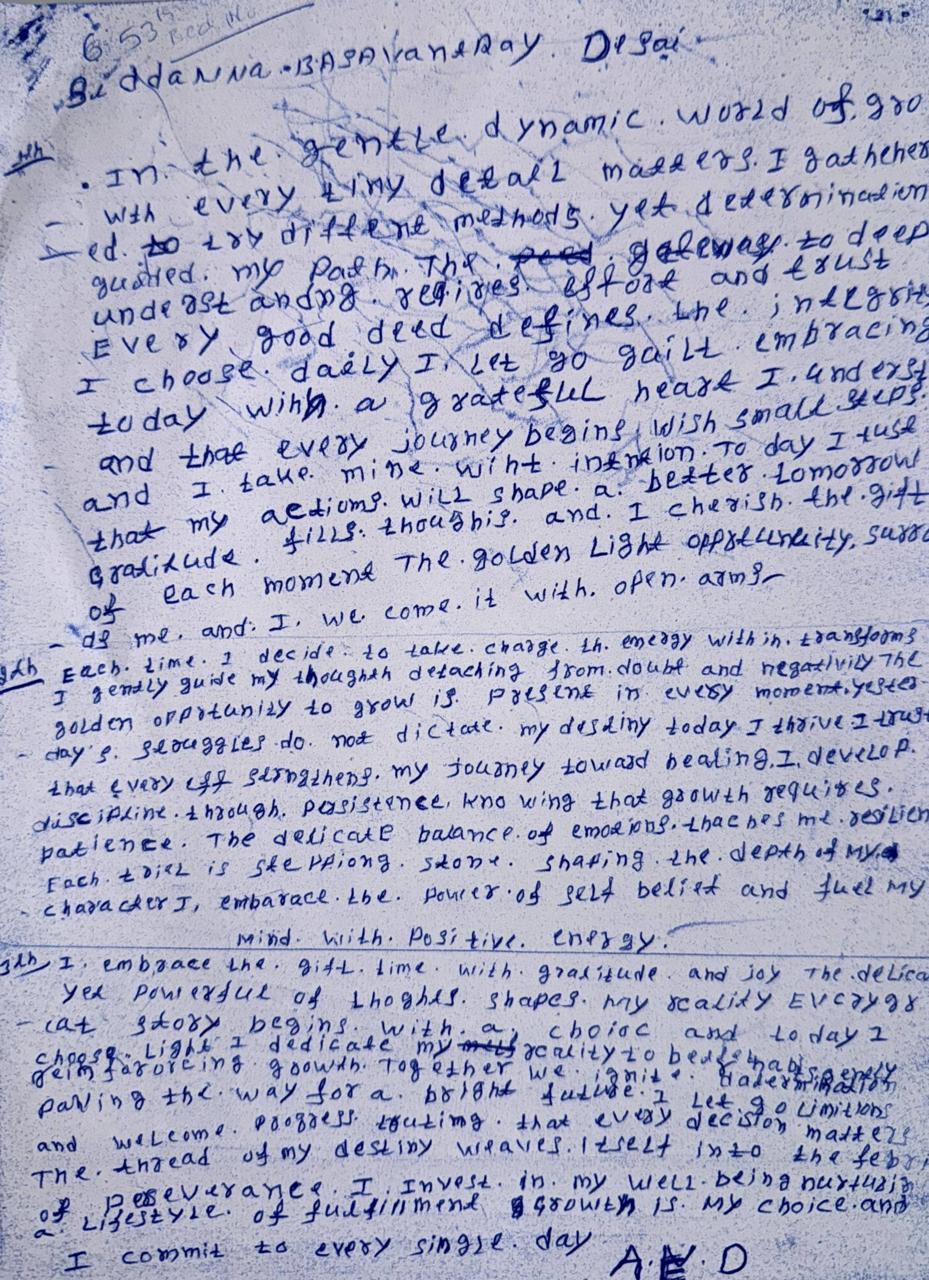 6:53
Bed No
Siddanna.BASAvaneRay. Desai
. In. the. gentle. dynamic. world of. gro
- wth every tiny detail matters. I gathehe
- ed. to try differne methods. yet determination
guided. my path. The. gateway. to deep
underst andng. reqires. effort and trust
Every good deed defines. the. integrity
I choose. daely I. Let go guilt. embracing
today with. a grateful heart I. underst
- and that every journey begins wish small steps.
and I. take. mine. wiht. intntion. To day I tust
that my aetioms. will shape. a. better. tomorrow
Gratitude. fills. thoughis. and. I cherish. the. gift
of each moment The. golden Light opprtuneity, surro
- ds me. and. I. we. come. it with. open. arms
Each. time. I decide. to take. charge. th. energy with in. transforms
I gently guide my thoughth detaching from. doubt and negativily The
golden opprtunity to grow is. present in every moment. yester-
- day's. struggles do. not dictate. my destiny today I thrive I trust
that every eff strengthens. my journey toward healing. I. develop.
discipline. through. persistence, kno wing that growth requires.
patience. The delicate balance. of emotions. thaches me. resilien
Each. triel is ste ppiong. stone. shaping. the. depth of my.
- character I, embarace. the. power. of self belief and fuel my
mind. with. positive. energy.
I. embrace the. gift. time. with. gratitude. and joy The. delica
yet powerful of thoghts. shapes. my reality Everygr
- eat story begins. with. a. choioc and today I
choose. Light I dedicate my reality to better habts gently
geimfarorcing growth. Together we. ignite. datermination
paving the. way for a. bright future. I Let go limitions
and welcome. progress. trutimg. that every decision matters
The. thread of my destiny weaves. itself into the febri
of perseverance. I. Invest. in. my well. being nurtuig
a. Lifestyle. of fulfillment growth is. my choice. and
I commit to every single. day
A.E.D